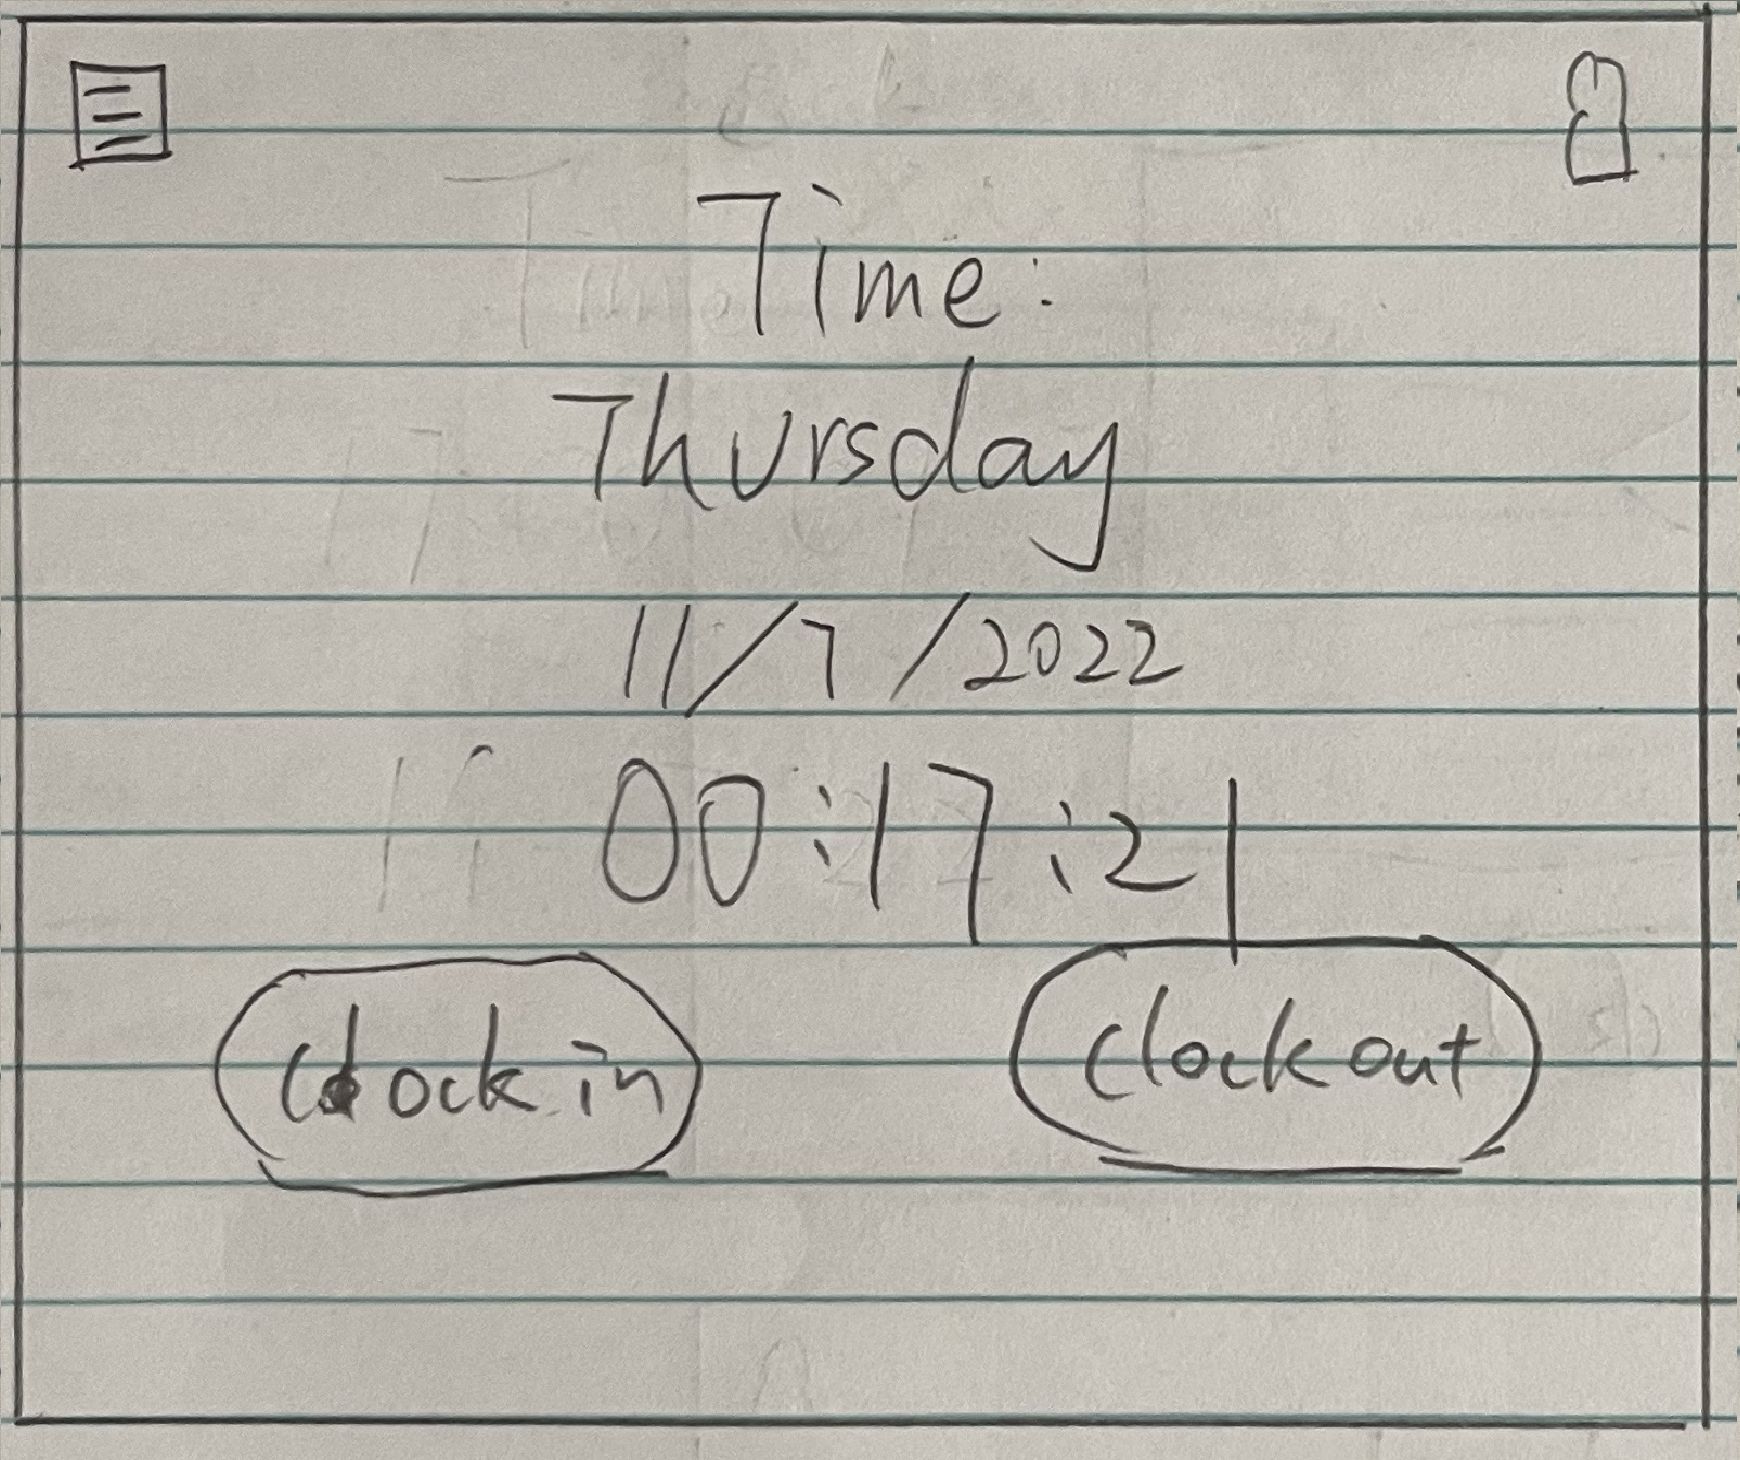 Time:
Thursday
11/7/2022
00:17:21
Clock in
Clock out